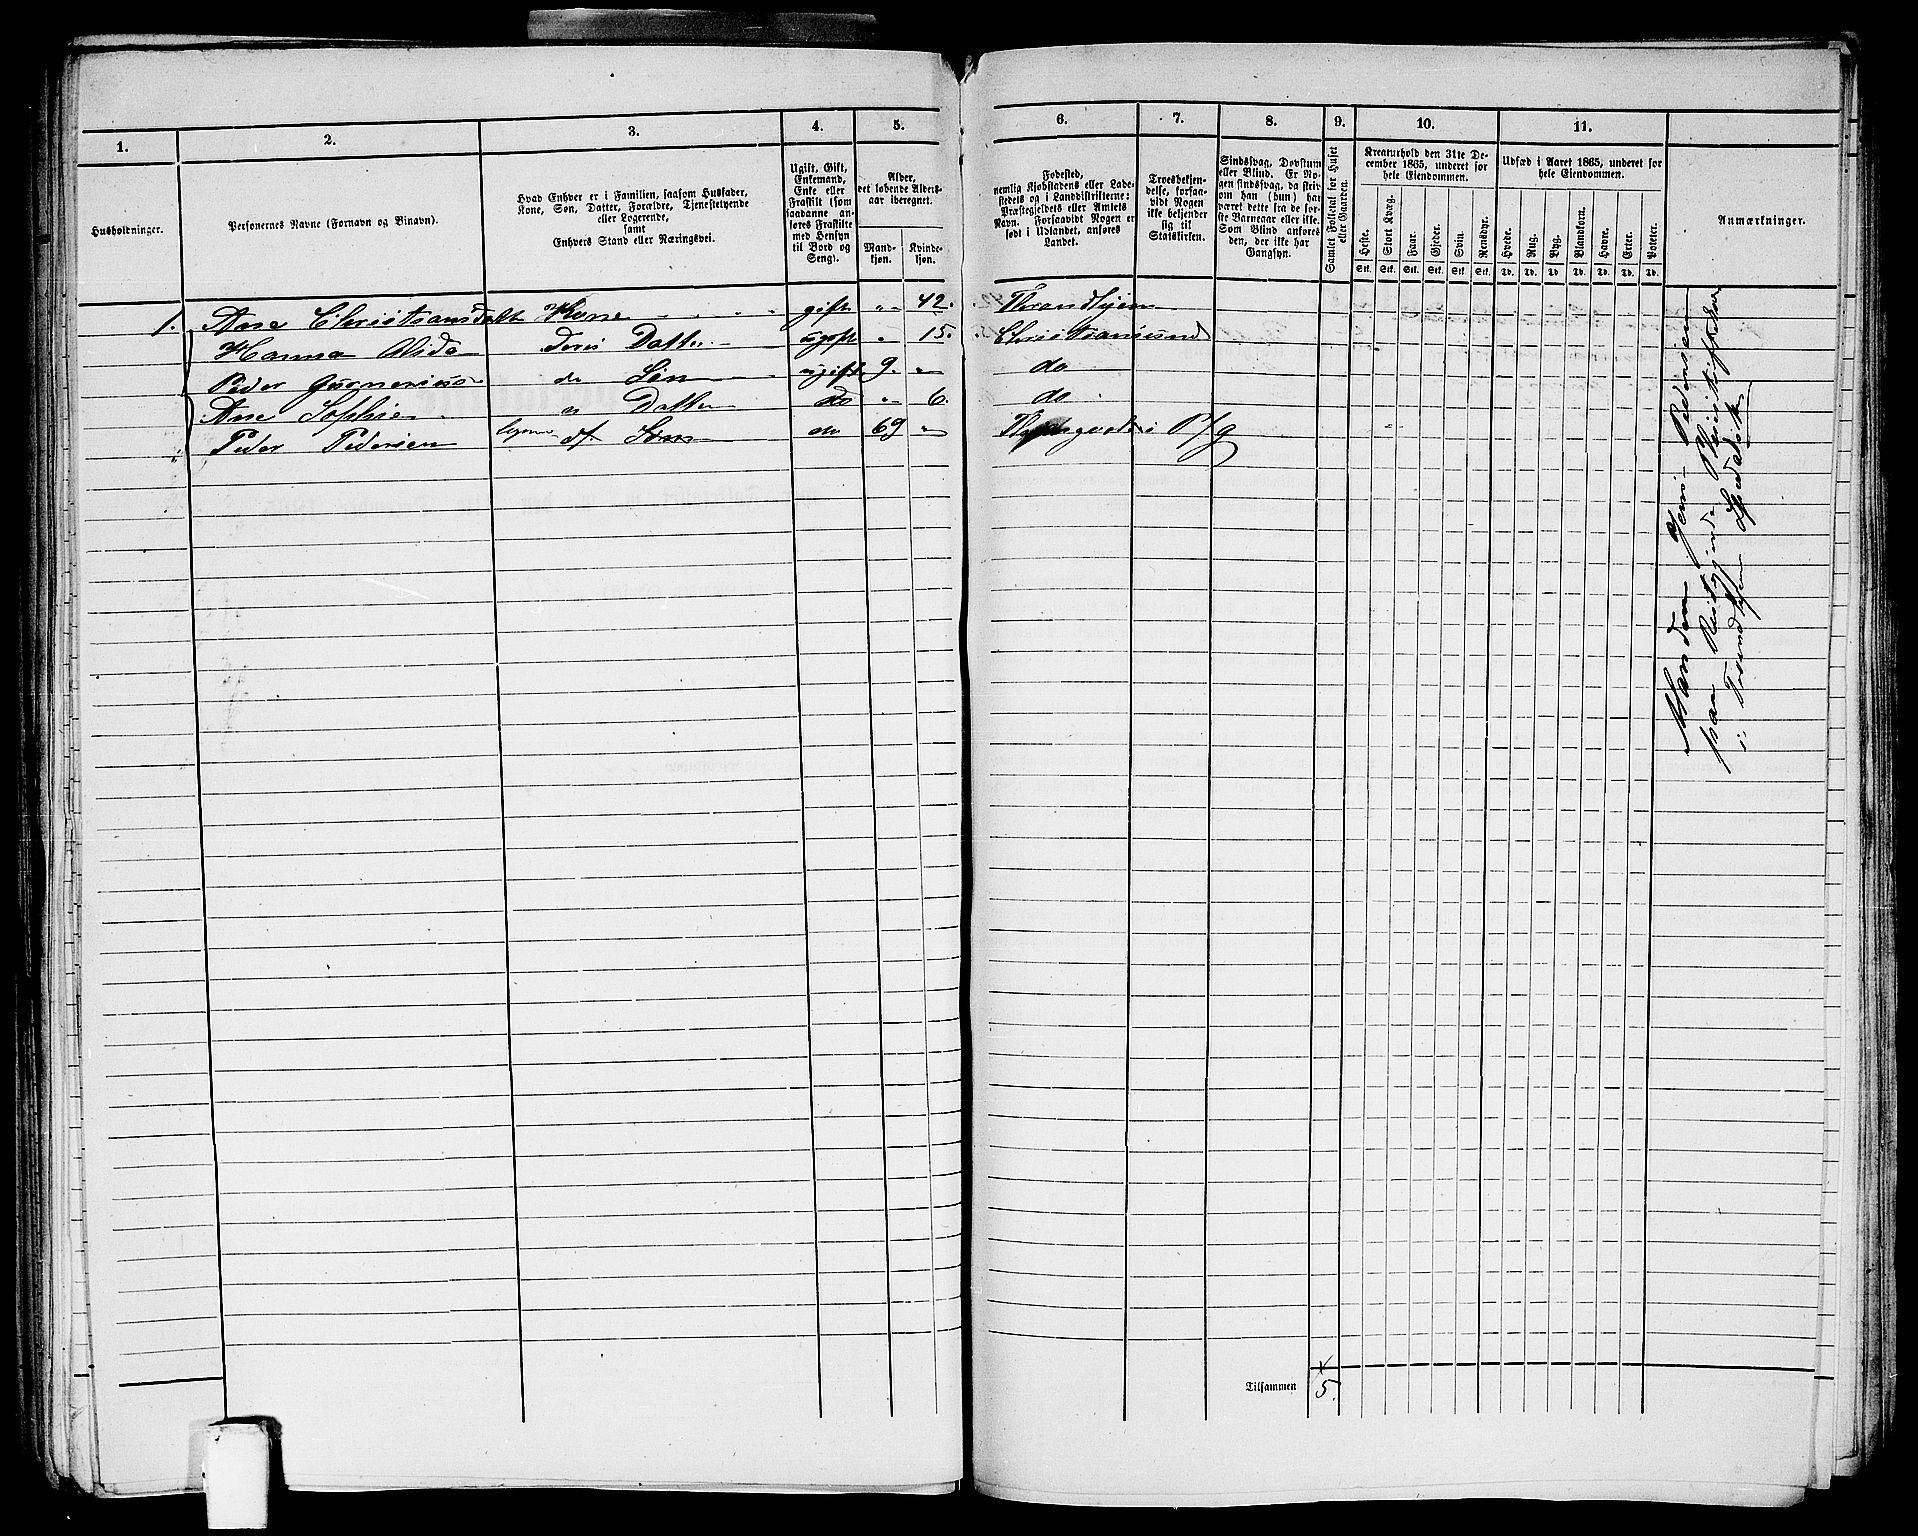 1. 2. 3. 4. 5. 6. 7. 8. 9. 10. 11.
Husholdninger.
Personernes Navne (Fornavn og Binavn).
Hvad Enhver er i Familien, saasom Husfader,
Kone, Søn, Datter, Forældre, Tjenestetyende
eller Logerende,
samt
Enhvers Stand eller Næringsvei.
Ugift, Gift,
Enkemand,
Enke eller
Fraskilt (som
saadanne an-
føres Fraskilte
med Hensyn
til Bord og
Seng).
Alder,
det løbende Alders-
aar iberegnet.
Mand-
kjøn.
Kvinde-
kjøn.
Fødested,
nemlig Kjøbstadens eller Lade-
stedets og i Landdistrikterne:
Præstegjeldets eller Amtets
Navn. Forsaavidt Nogen er
født i Udlandet, anføres
Landet.
Troesbekjen-
delse, forsaa-
vidt Nogen
ikke bekjender
sig til
Statskirken.
Sindssvag, Døvstum
eller Blind. Er No-
gen sindssvag, da skriv
om han (hun) har
været dette fra de før-
ste Barneaar eller ikke.
Som Blind anføres
den, der ikke har
Gangsyn.
Samlet Folketal for Huset
eller Gaarden.
Kreaturhold den 31te De-
cember 1865, underet for
hele Eiendommen.
Heste. Stort Kvæg. Faar. Gjeder. Svin. Rensdyr.
Stk. Stk. Stk. Stk. Stk. Stk.
Udsæd i Aaret 1865, underet for
hele Eiendommen.
Hvede. Rug. Byg. Blandkorn. Havre. Erter. Poteter.
Td. Td. Td. Td. Td. Td. Td.
Anmærkninger.
1. Ane Christiansdatt Kone gift „ 42. Thrandhjem
Hanna Alida Deres Datter ugift „ 15. Christiansund
Peder do Søn ugift 9. „ do
Ane Sophie „ Datter do „ 6. do
Peder Pedersen Søn do 69 „ P/g
Manden Jens Pedersen
paa
i Trondhjem Spedalsk
Tilsammen 5.